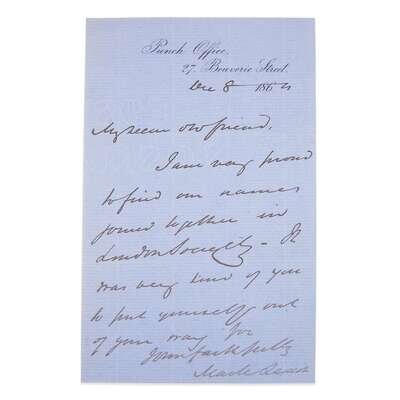 Punch Office,
27, Bouverie Street.
Dec 8 186
My old friend,
I am very proud
to find our names
joined together in
London Society – It
was very kind of you
to put yourself out
of your way for
Yours faithfully
Mark